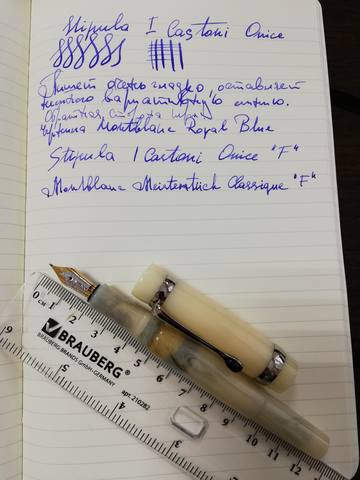 Stipula I Castoni Onice
Пишет очень гладко, оставляет
вариативную линию.
Обратная сторона пера
Чернила Montblanc Royal Blue
Stipula I Castoni Onice "F"
Montblanc Meisterstück Classique "F"
0 см 1 2 3 4 5 6 7 8 9 10 11 12
BRAUBERG®
BRAUBERG-BRANDS GmbH-GERMANY
арт. 210282
6 5 4 3